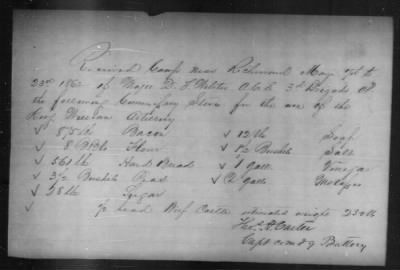 Received Camp near Richmond May 9th to
23rd 1862 of Major D. T. Webster A.C.S. 3rd Brigade
the following Commissary Stores for the use of the
King William Artillery
√ 85 lb Bacon √ 12 lb Soap
√ 8 Bbls Flour √ 1½ Bushels Salt
√ 561 lb Hard Bread √ 1 gall Vinegar
√ 3½ Bushels Peas √ 2 galls Molasses
√ 28 lb Sugar
√ ½ head Beef Cattle estimated weight 230 lb
Thos. H. Carter
Capt comdg Battery